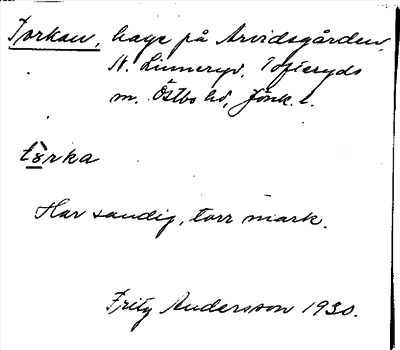 Torkan, hage på Arvidsgården,
N. Linneryd, Tofteryds
m. Östbo hd, Jönk. l.
tòrka
Har sandig, torr mark.
Fritz Andersson 1930.